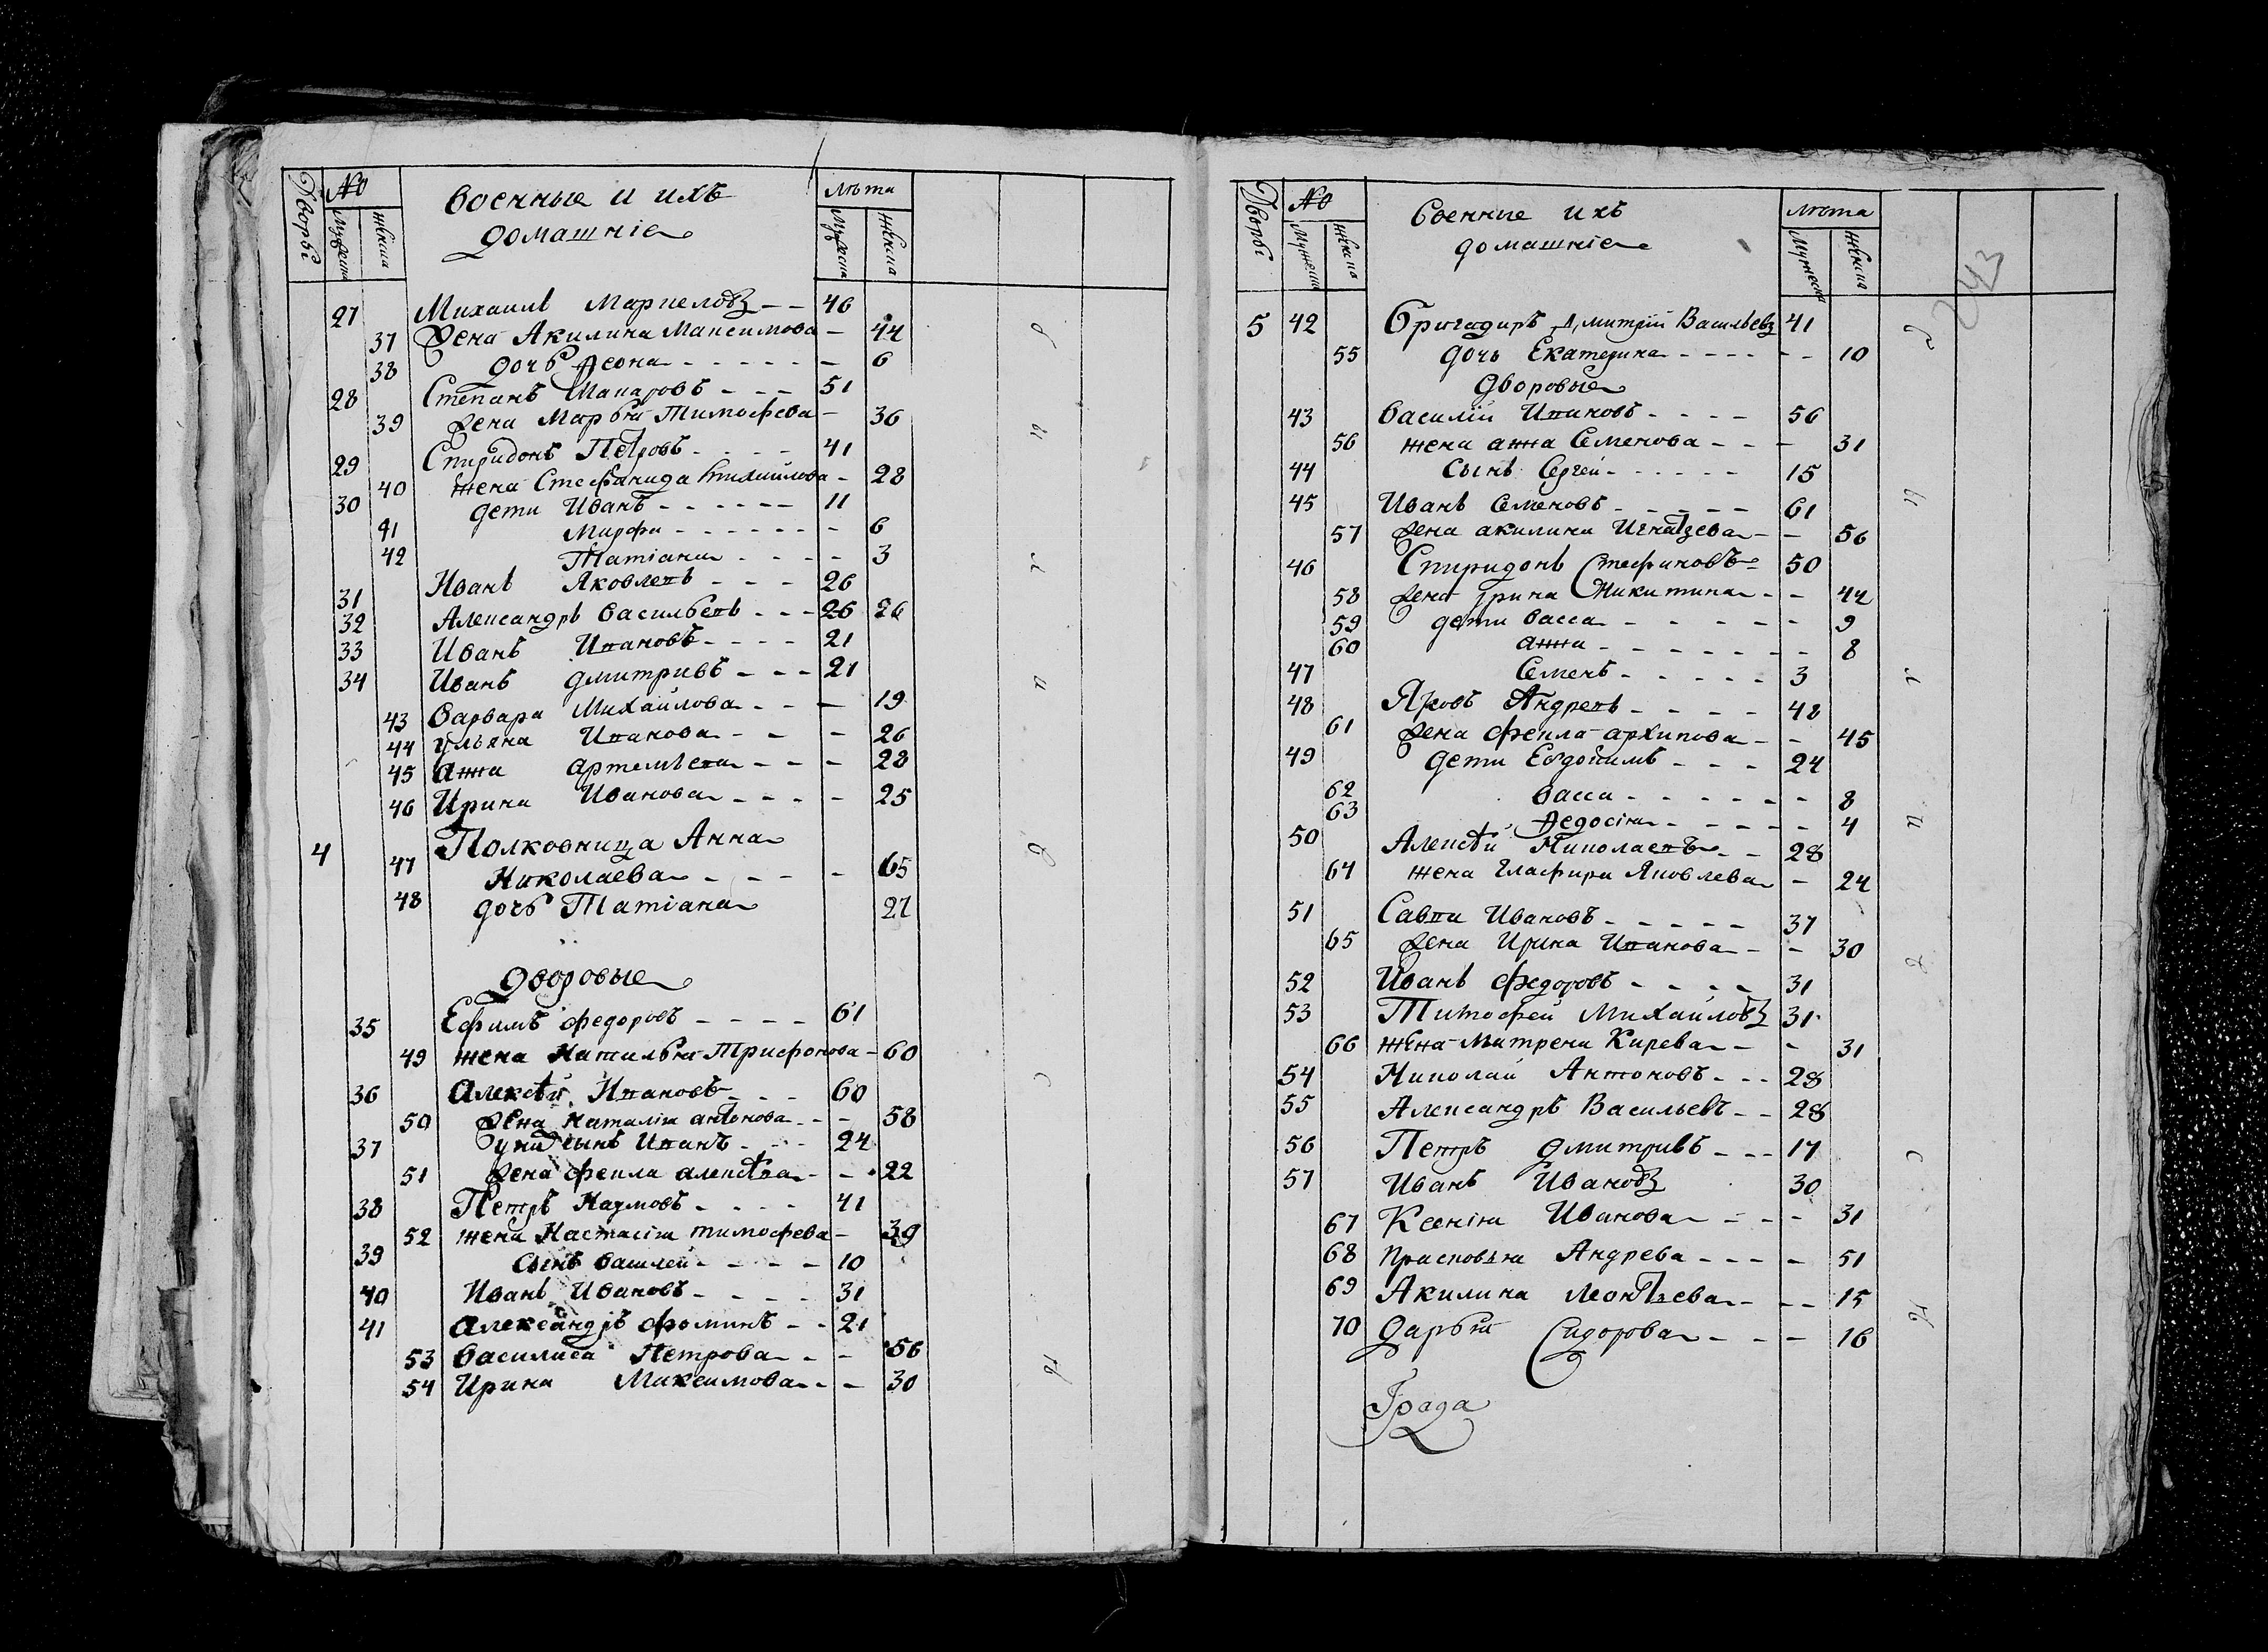 Дворы № Военные и ихъ лѣта
Мужеска Женска домашнiе Мужеска Женска
27 Михаилъ Маркеловъ - - 46
37 Жена Акилина Максимова - 44
38 дочь Ѳеона - - - - - - 6
28 Степанъ Макаровъ - - - 51
39 жена Марья Тимофева - 36
29 Спиридонъ Петровъ - - - - 41
40 жена Стефанида - 28
30 дети Иванъ - - - - - - 11
41 Марфа - - - - - - - 6
42 Татiана - - - - - 3
31 Иванъ Яковлевъ - - - 26
32 Александръ Васильевъ - - - 26 26
33 Иванъ Ивановъ - - - - 21
34 Иванъ дмитривъ - - - 21
43 Варвара Михайлова - - - 19
44 ульяна Иванова - - - 26
45 анна артемьева - - - - 28
46 Ирина Иванова - - - - 25
4 47 Полковница Анна
Николаева - - - - - 65
48 дочь Татiана 27
дворовые
35 Ефимъ федоровъ - - - - 61
49 жена Наталья Трифонова - 60
36 алексѣй Ивановъ - - - 60
50 жена наталiя антонова - - - 58
37 у нихъ сынъ Иванъ - - - 24
51 жена фекла алексѣва - - - 22
38 Петръ Наумовъ - - - - 41
52 жена Настасiя тимофева - 39
39 Сынъ Василей - - - - 10
40 Иванъ Ивановъ - - - - 31
41 александръ фоминъ - - 21
53 Василиса Петрова - - - 56
54 Ирина Максимова - - - 30
Дворы № Военные ихъ лѣта
Мужеска Женска домашнiе Мужеска Женска
243
5 42 Бригадиръ Дмитрiй Васильевъ 41
55 дочь Екатерина - - - - - - 10
дворовые
43 Василiй Ивановъ - - - - 56
56 жена анна Семенова - - - 31
44 сынъ Сергей - - - - - - 15
45 Иванъ Семеновъ - - - - - 61
57 жена акилина Игнатьева - - 56
46 Спиридонъ Стефановъ - 50
58 жена Ирина Никитина - - 44
59 дети васса - - - - - - 9
60 анна - - - - - - - 8
47 Семенъ - - - - - 3
48 Яковъ Андревъ - - - - 48
61 жена фекла архипова - - 45
49 дети Евдокимъ - - - 24
62 васса - - - - - - - 8
63 Ѳедосiя - - - - - - 4
50 Алексѣй Николаевъ - - 28
64 жена глафира Яковлева - 24
51 Савва Ивановъ - - - - - 37
65 жена Ирина Иванова - - 30
52 Иванъ федоровъ - - - - 31
53 Тимофей Михайловъ 31
66 жена Матрена Кирева - - 31
54 Николай Антоновъ - - - 28
55 Александръ Васильевъ - - 28
56 Петръ дмитривъ - - - 17
57 Иванъ Ивановъ 30
67 Ксенiя Иванова - - - - 31
68 прасковья Андрева - - - - 51
69 Акилина Леонтьева - - - 15
70 дарья Сидорова - - - - 16